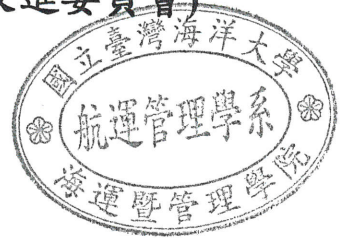 進委員會)
國立臺灣海洋大學
航運管理學系
海運暨管理學院